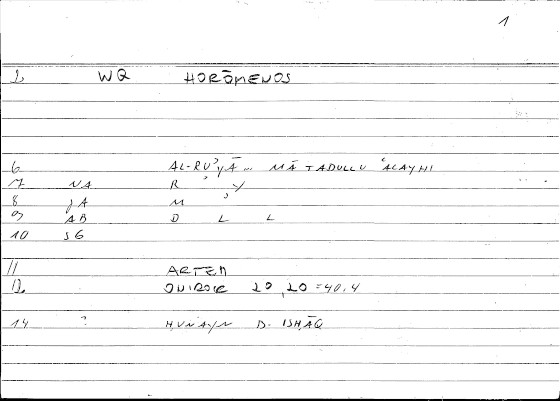 1
2 WQ HORŌMENOS
6 AL-RU'YĀ... MĀ TADULLU 'ALAYHI
7 NA R ' Y
8 JA M '
9 AB D L L
10 SG
11 ARTEM
12 ONIROCR 20,20=40,4
14 ? ḤUNAYN B. ISḤĀQ